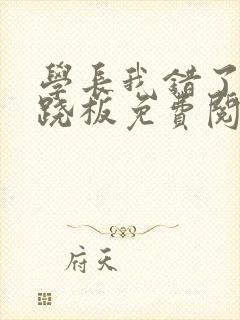 學長我錯了
跷板免費閱
府天